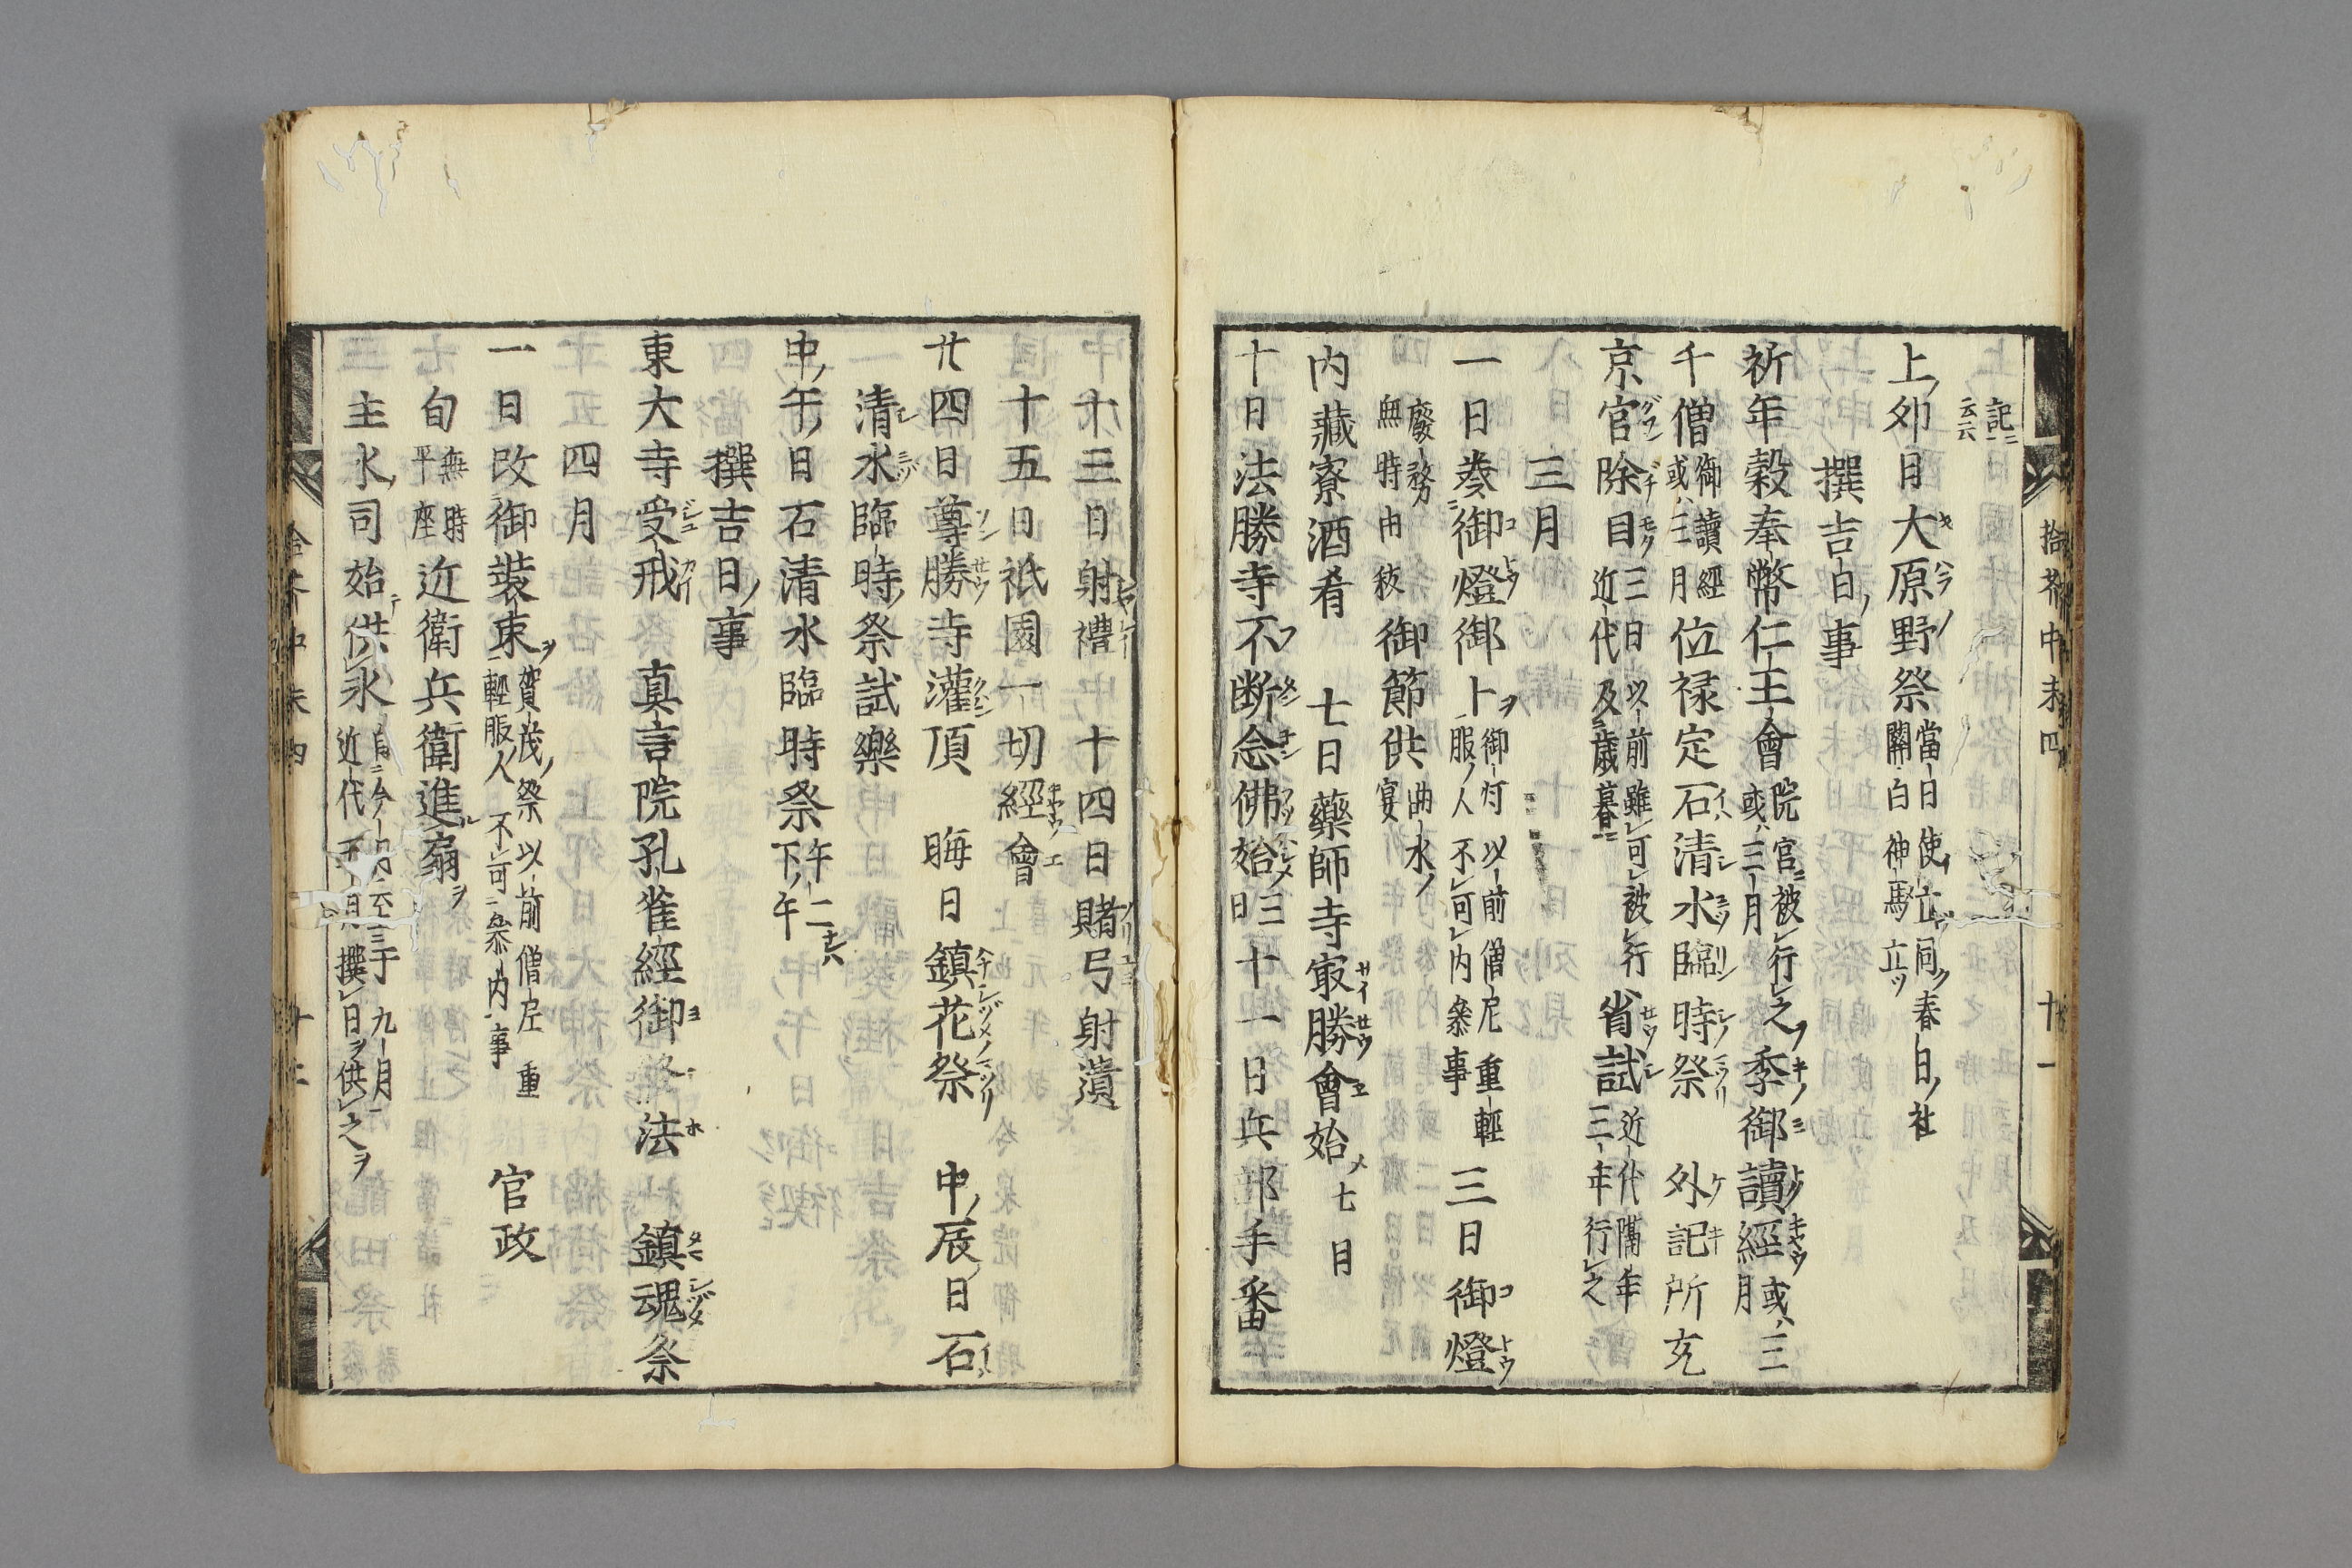 記ニ云云
上ノ卯日大原野祭 當日使立同ク春日ノ社 關白神馬立ツ
撰吉日ノ事
祈年穀奉幣仁王會 院官ニ被レ行之ヲ 或ハ三月 季御讀經 或ハ三月
千僧御讀經 或ハ三月 位禄定石清水臨時祭 外記所充
京官除目 三日以前雖レ可レ被レ行 近代及歳暮ニ 省試 近代隔年 三年行レ之
三月
一日奏御燈御卜ヲ 御灯以前僧尼重輕 服ノ人不レ可レ内參事 三日御燈
廢務 無時由祓 御節供 曲水ノ宴
内藏寮酒肴 七日藥師寺㝡勝會始メ 七日
十日法勝寺不断念佛始 三日 十一日兵部手番
拾芥中末四 十一
十三日射禮 十四日賭弓射遺
十五日祇園一切經會
廿四日尊勝寺灌頂 晦日鎮花祭 中ノ辰ノ日石
清水臨時ノ祭試樂
中ノ午ノ日石清水臨時祭 午二ナレハ下ノ午
撰吉日ノ事
東大寺受戒 真言院孔雀經御 法 鎮魂祭
四月
一日改御装束ヲ 賀茂ノ祭以前僧尼重 輕服ノ人不レ可ニ參内ノ事 官政
旬 無時平座 近衛兵衛進扇ヲ
主水ノ司始テ供レ氷 九月 近代 撰レ日ヲ供レ之ヲ
十二